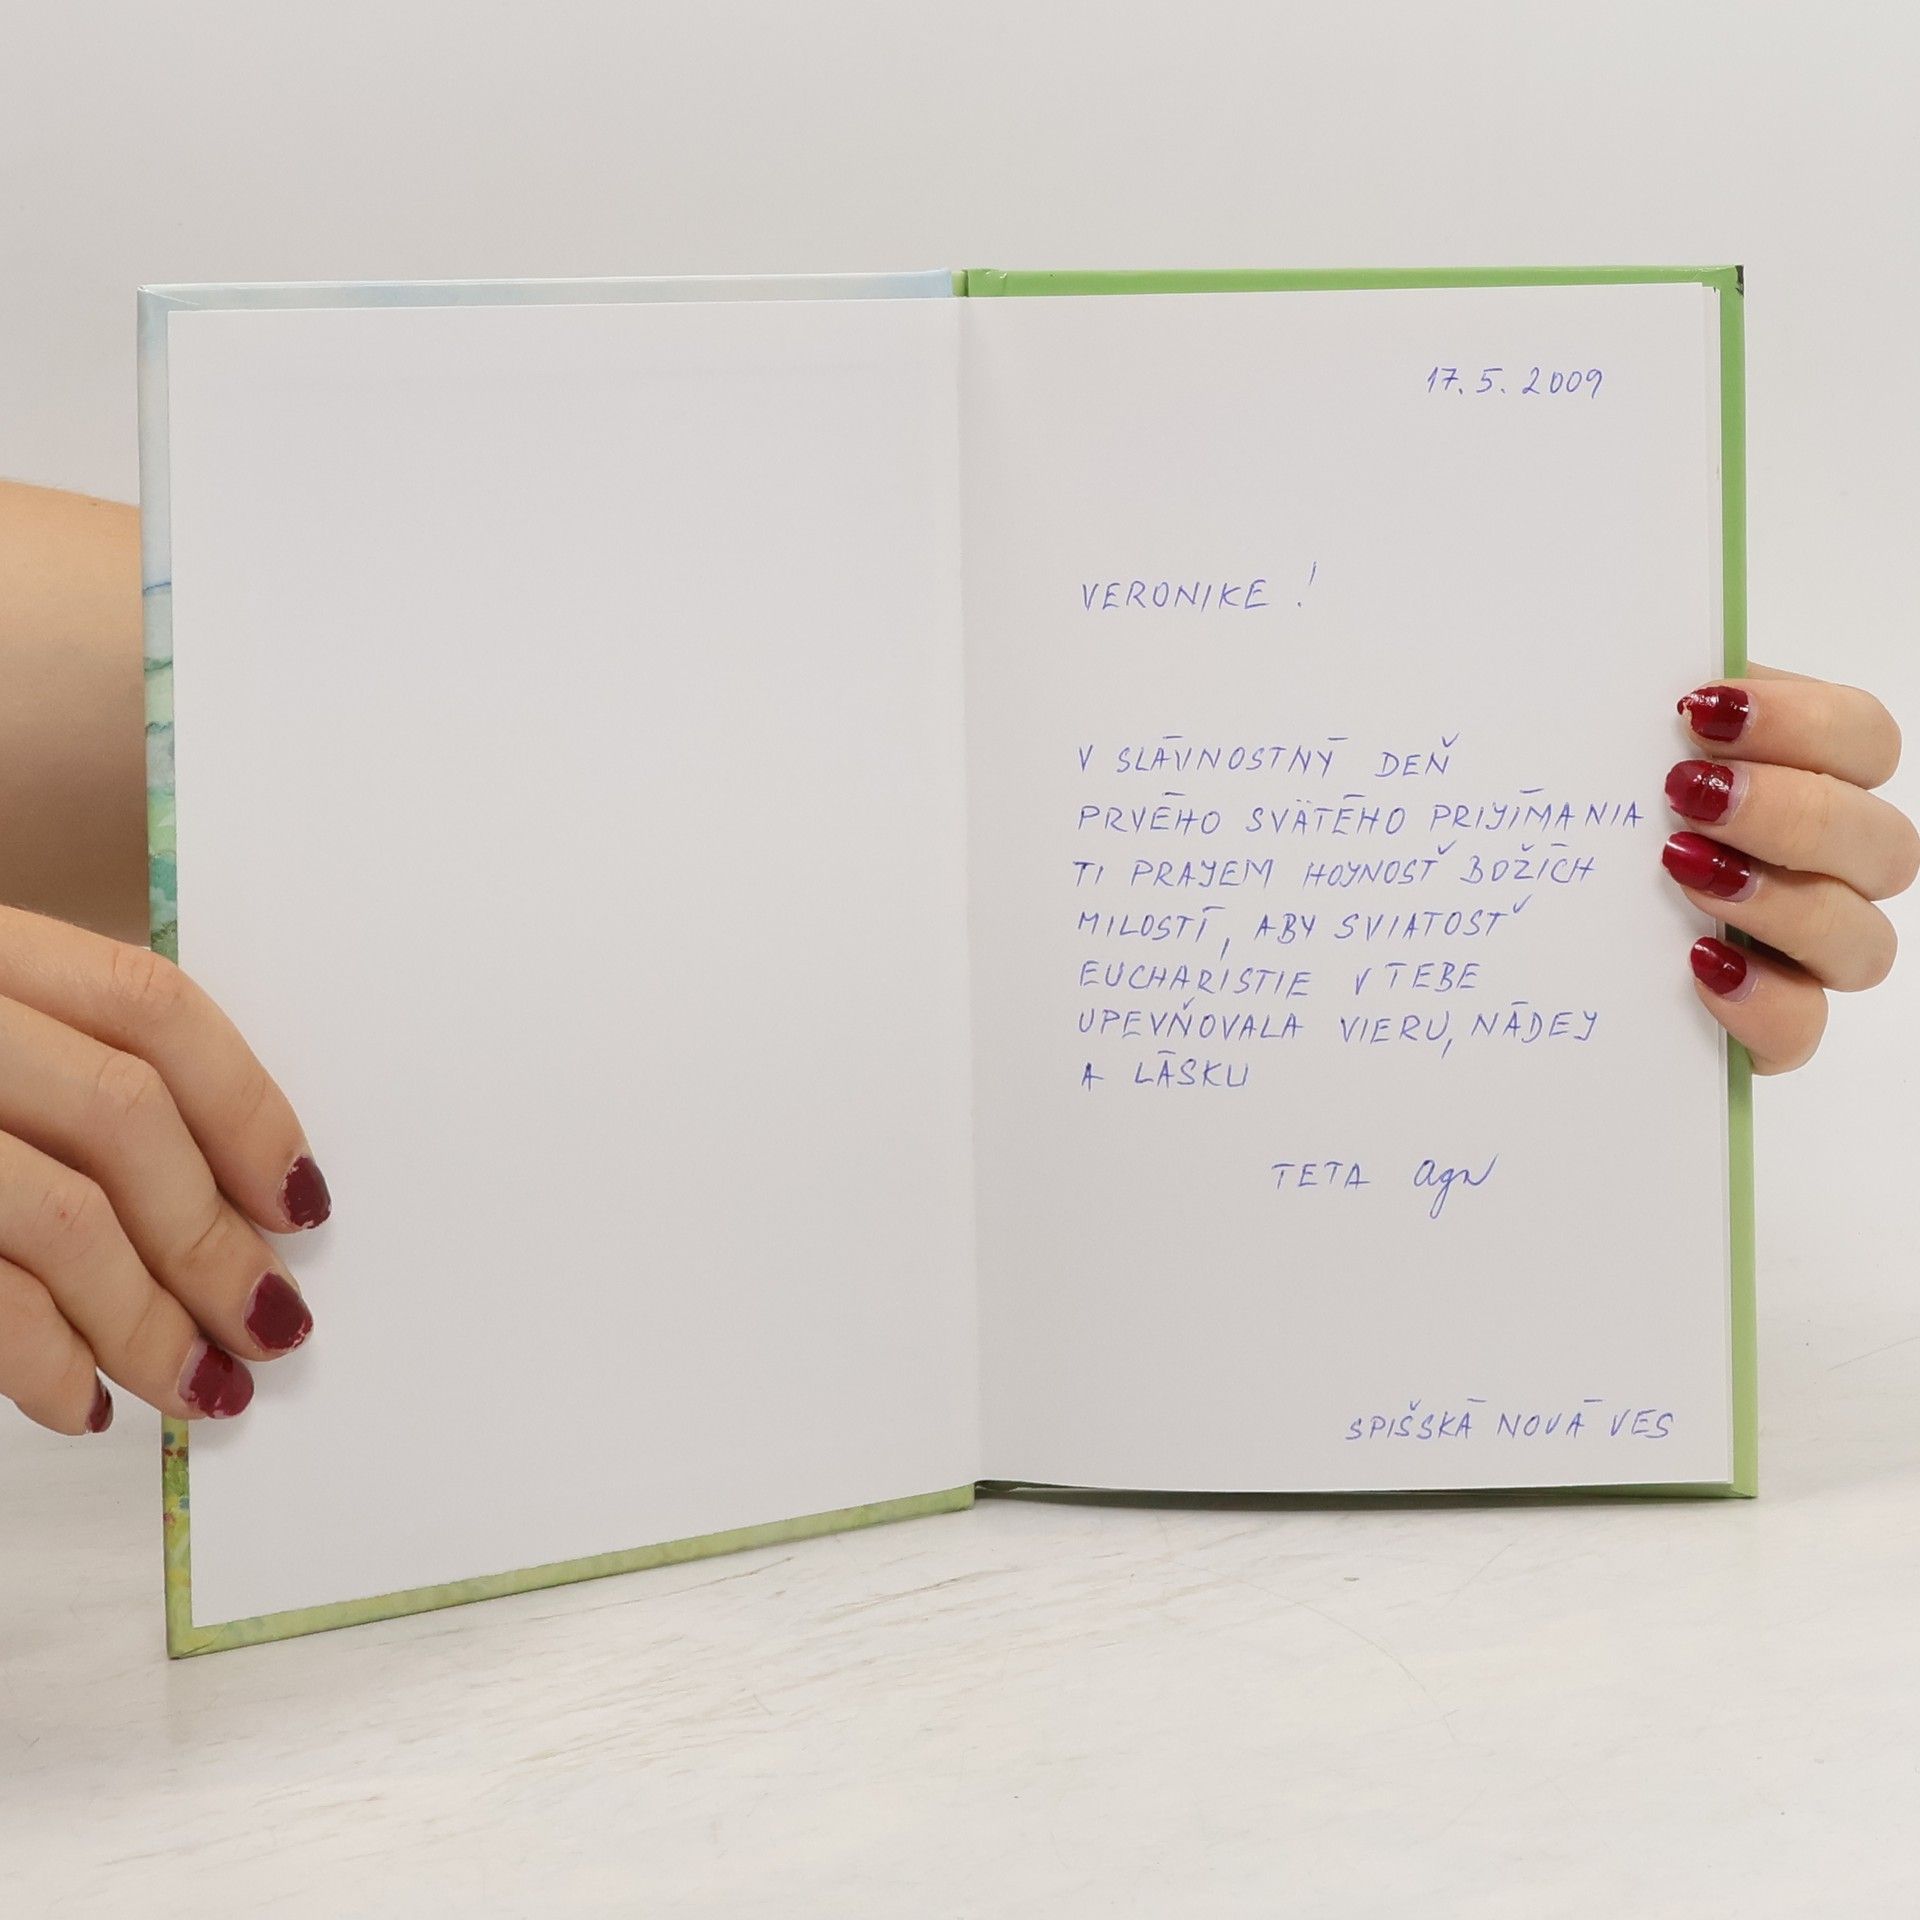 17. 5. 2009
VERONIKE !
V SLÁVNOSTNÝ DEŇ
PRVÉHO SVÄTÉHO PRIJÍMANIA
TI PRAJEM HOJNOSŤ BOŽÍCH
MILOSTÍ, ABY SVIATOSŤ
EUCHARISTIE V TEBE
UPEVŇOVALA VIERU, NÁDEJ
A LÁSKU
TETA
SPIŠSKÁ NOVÁ VES